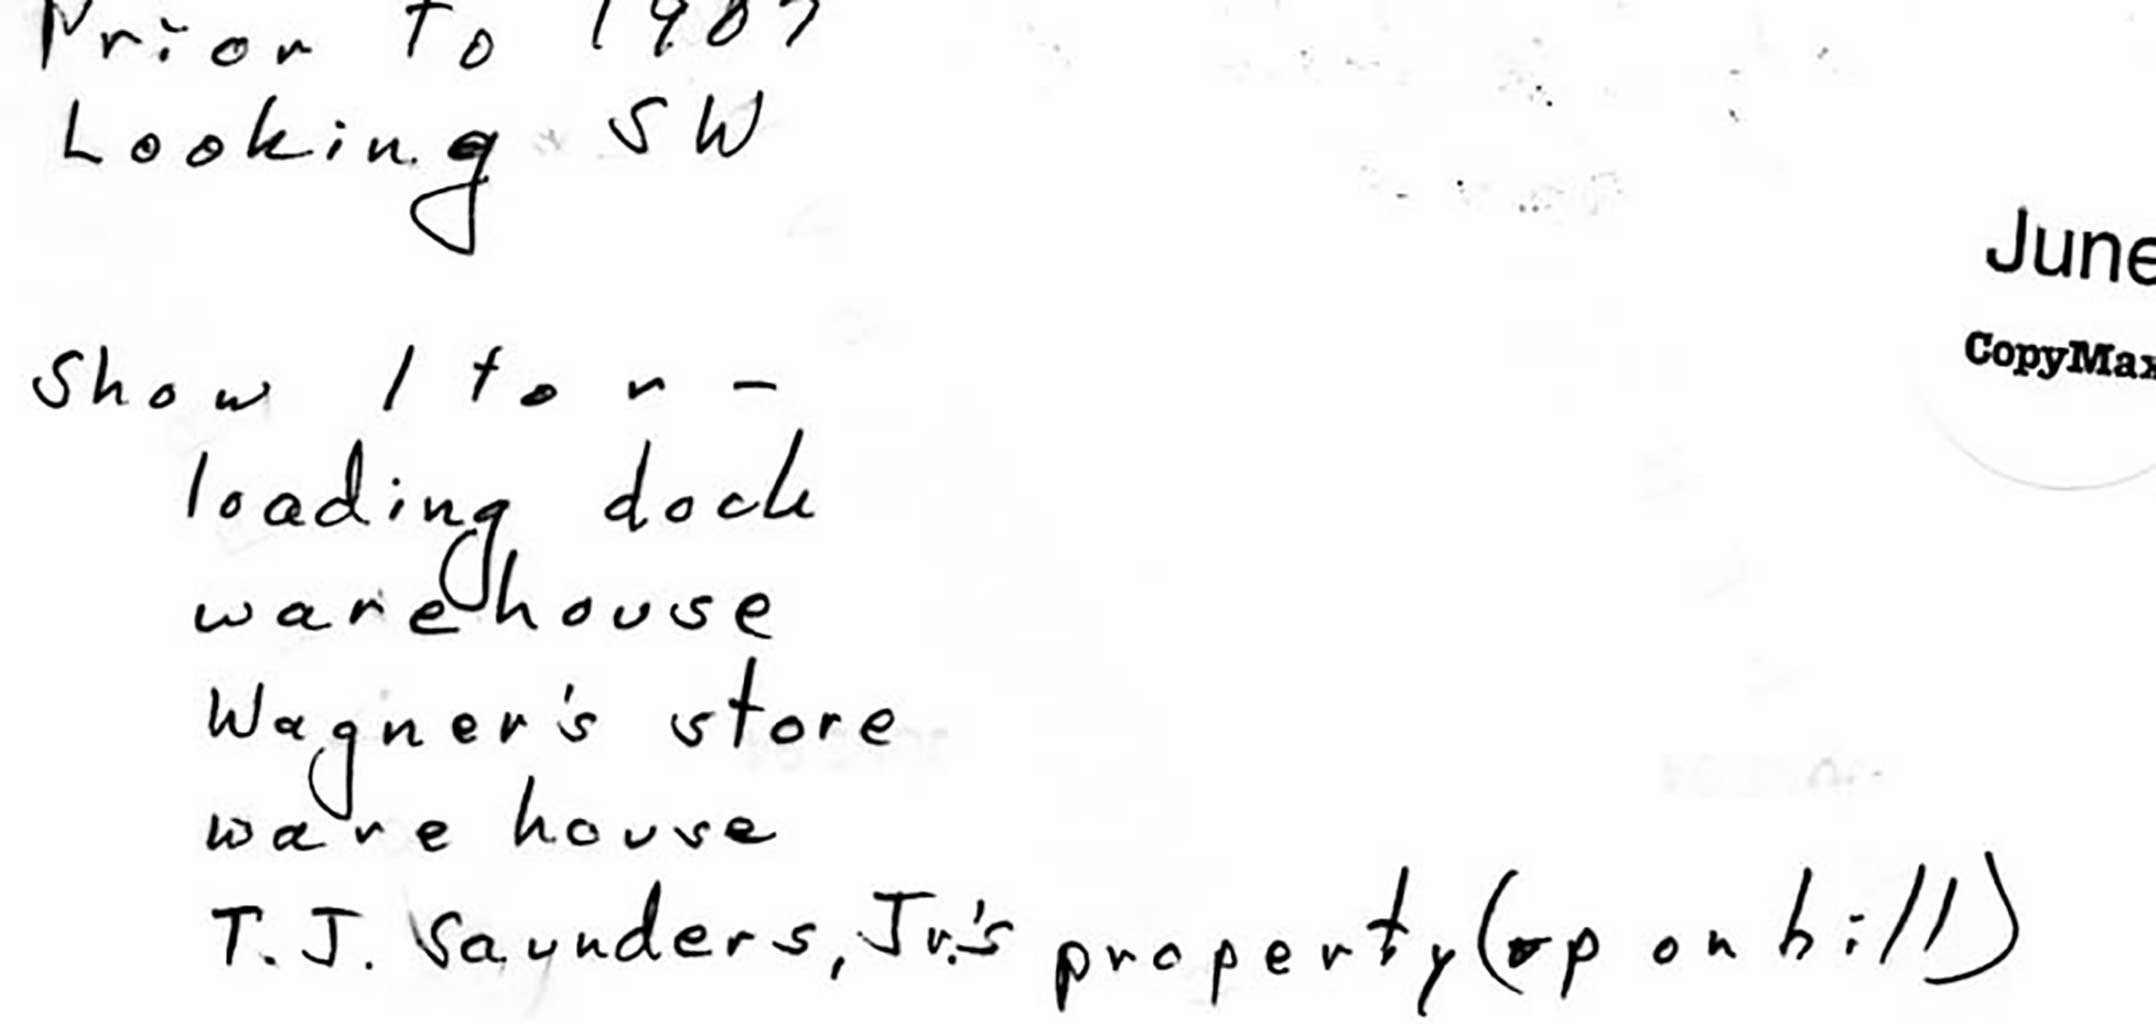 Prior to 1907
Looking SW
June
CopyMax
Show l to r -
loading dock
warehouse
Wagner's store
ware house
T.J. Saunders, Jr.'s property (up on hill)